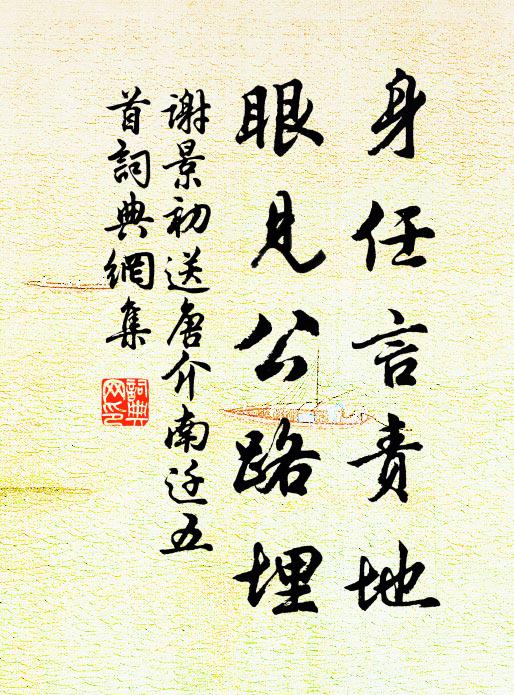 身任言责地
眼见公路埋
谢景初送唐介南迁五
首詞典網集
詞典
网印